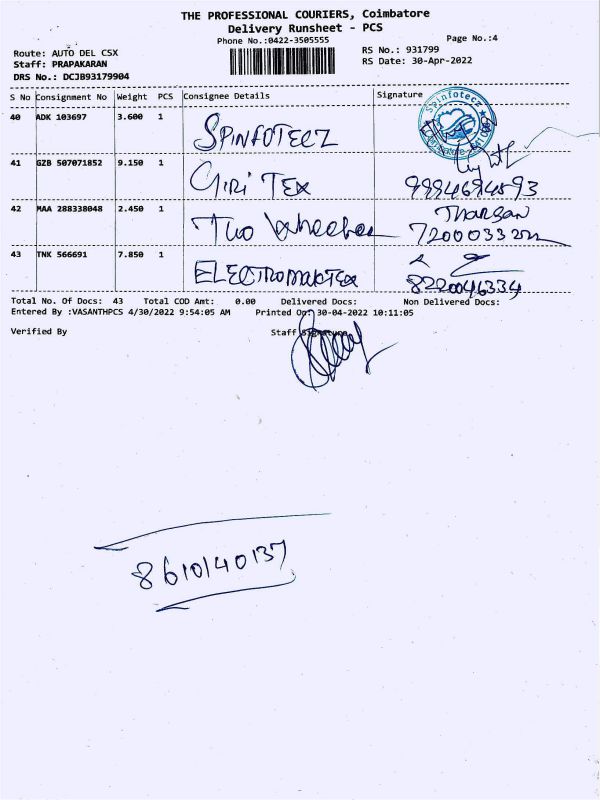 THE PROFESSIONAL COURIERS, Coimbatore
Delivery Runsheet - PCS
Phone No.:0422-3505555
Page No.:4
Route: AUTO DEL CSX
RS No.: 931799
Staff: PRAPAKARAN
RS Date: 30-Apr-2022
DRS No.: DCJB93179904
S No Consignment No Weight PCS Consignee Details Signature
40 ADK 103697 3.600 1 SPINFOTECZ Spinfotecz
41 GZB 507071852 9.150 1 GIRI TEX
42 MAA 288338048 2.450 1 Two Wheeler Tharsan
43 TNK 566691 7.850 1 8220046334
Total No. Of Docs: 43 Total COD Amt: 0.00 Delivered Docs: Non Delivered Docs:
Entered By :VASANTHPCS 4/30/2022 9:54:05 AM Printed On: 30-04-2022 10:11:05
Verified By Staff Signature
8610140137